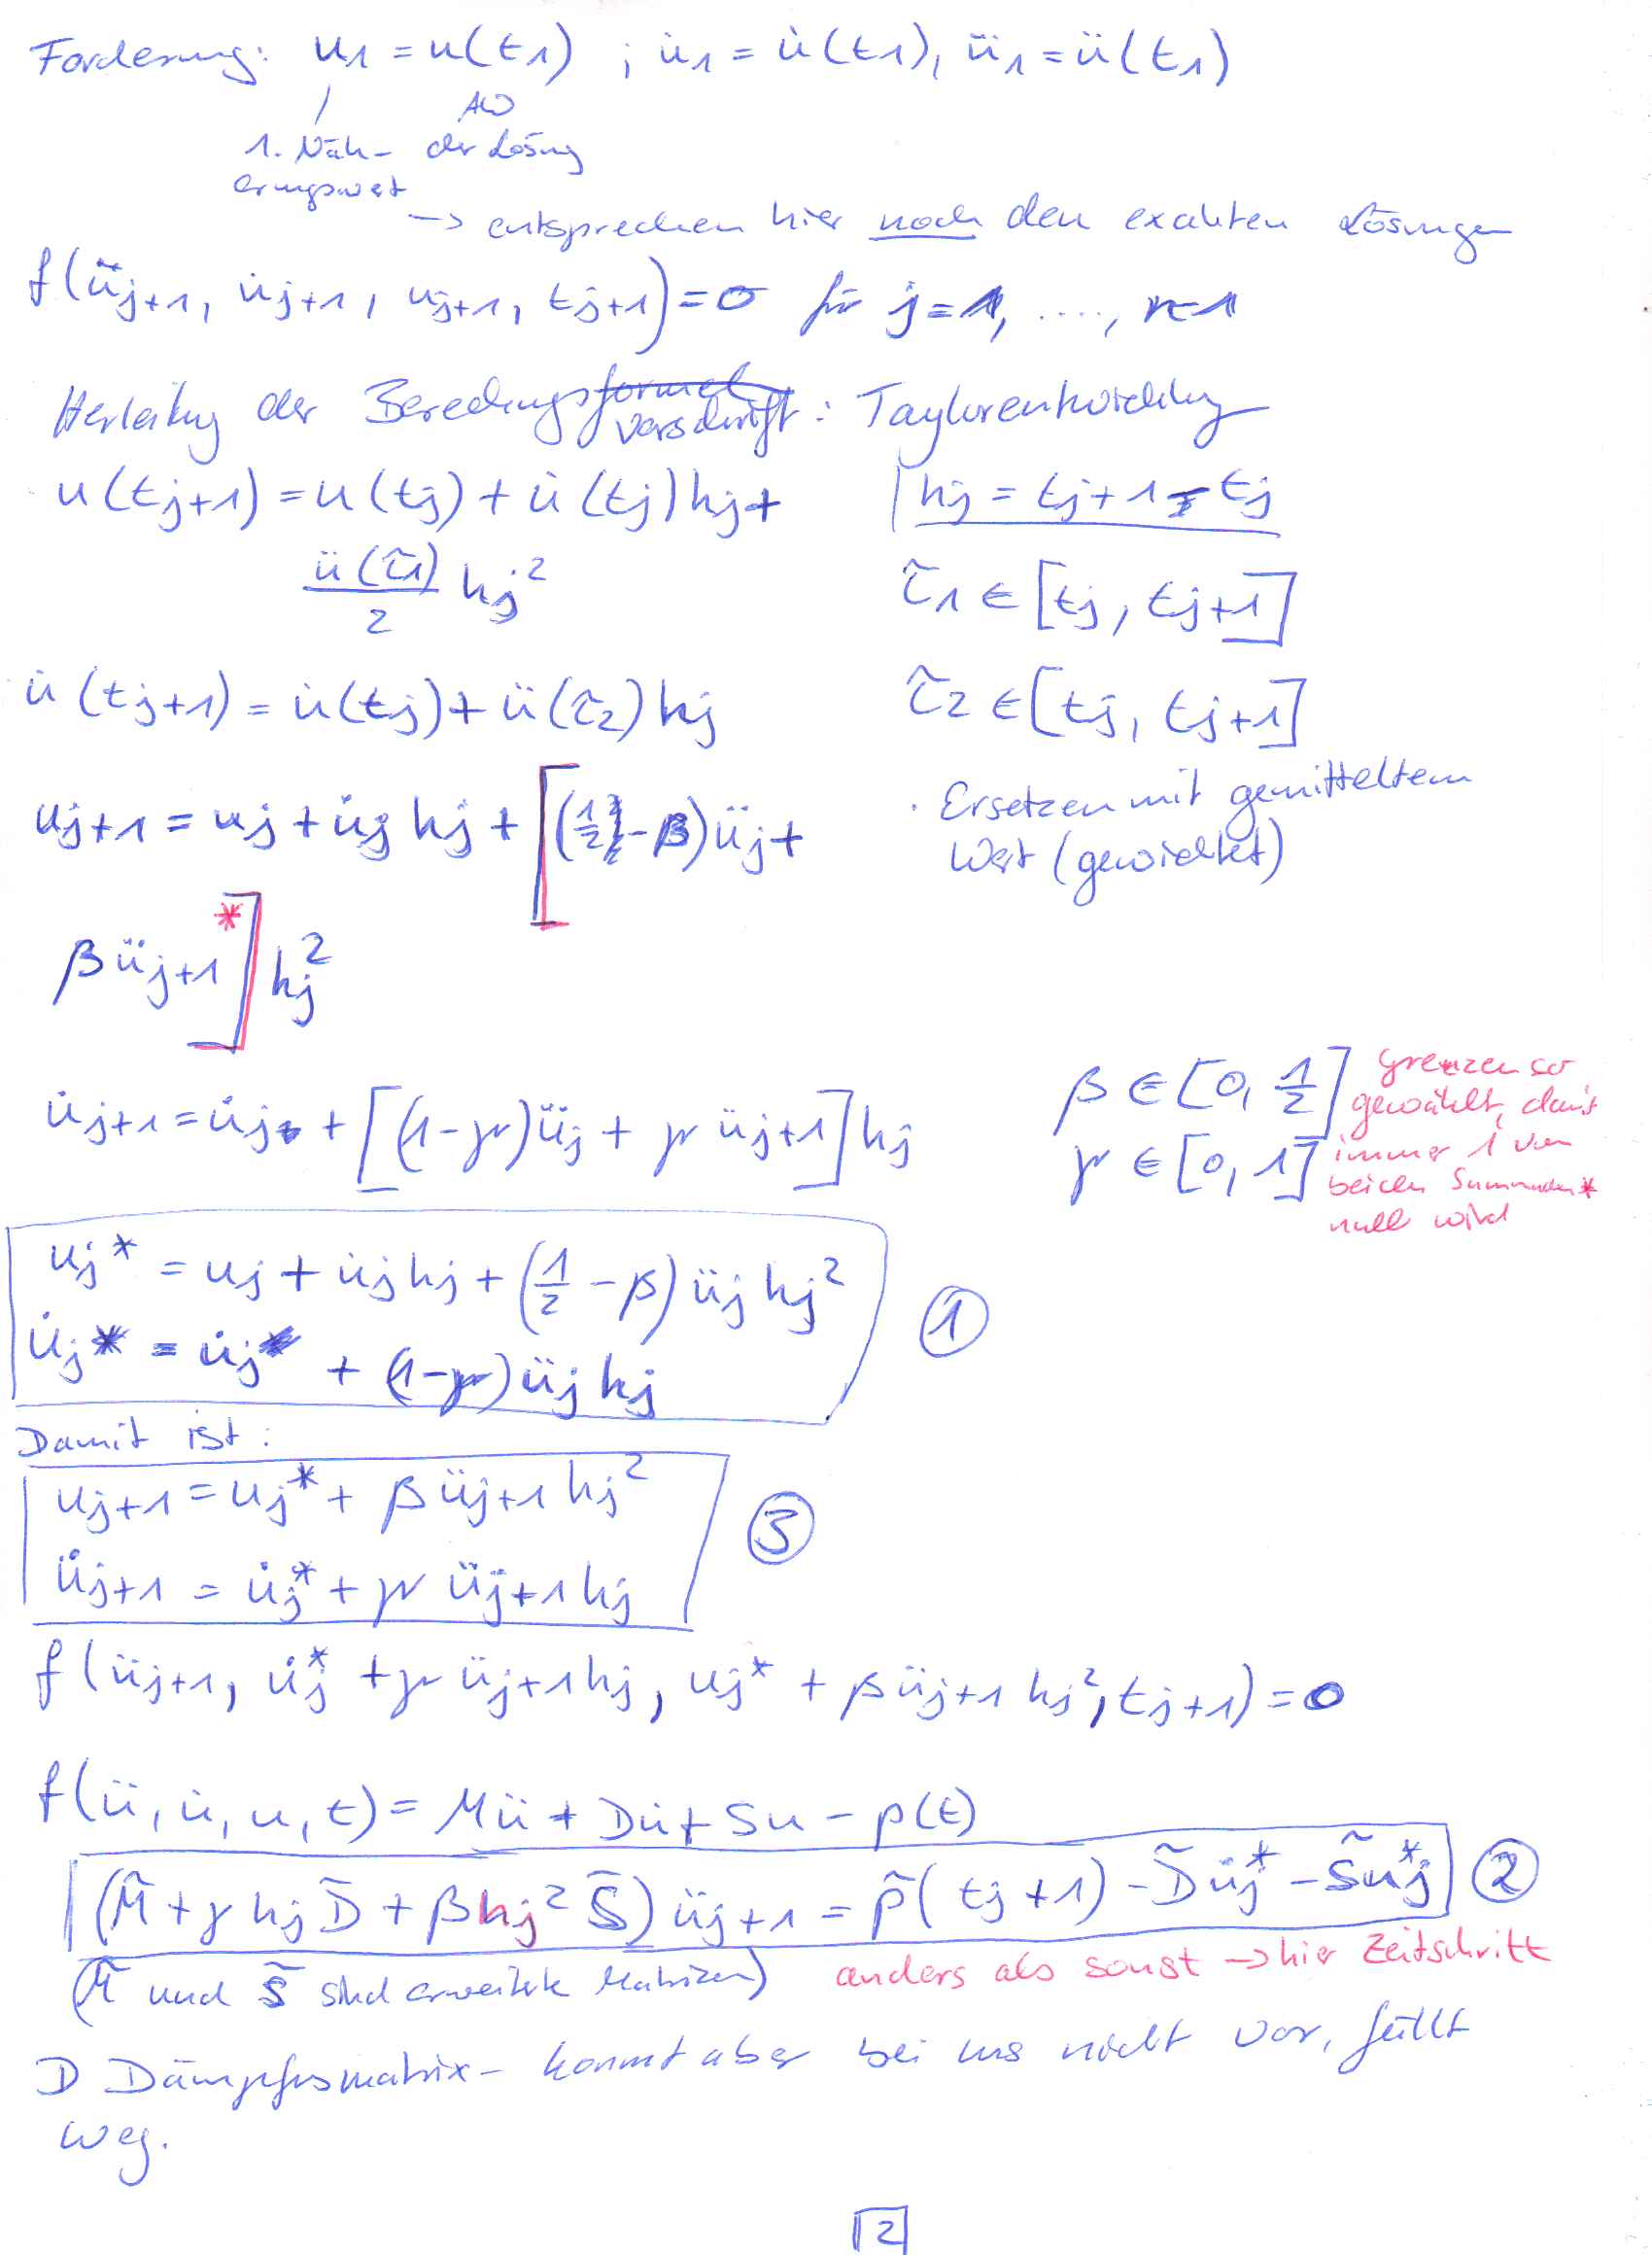 Forderung: u1 = u(t1) ; u̇1 = u̇(t1), ü1 = ü(t1)
AW
1. Näh- der Lösung
erungswert
→ entsprechen hier noch den exakten Lösungen
f(üj+1, u̇j+1, uj+1, tj+1) = 0 für j = 1, ...., n-1
Herleitung der Berechnungsformel vorschrift: Taylorentwicklung
u(tj+1) = u(tj) + u̇(tj)hj + | hj = tj+1 - tj
ü(τ̃1)/2 hj² τ̃1 ∈ [tj, tj+1]
u̇(tj+1) = u̇(tj) + ü(τ̃2)hj τ̃2 ∈ [tj, tj+1]
uj+1 = uj + u̇j hj + [(1/2 - β)üj + · Ersetzen mit gemitteltem
Wert (gewichtet)
β üj+1]* hj²
u̇j+1 = u̇j + [(1-γ)üj + γ üj+1] hj
β ∈ [0, 1/2] Grenzen so
gewählt, damit
γ ∈ [0, 1] immer 1 von
beiden Summanden*
null wird
uj* = uj + u̇j hj + (1/2 - β) üj hj²
①
u̇j* = u̇j + (1-γ) üj hj
Damit ist:
uj+1 = uj* + β üj+1 hj²
③
u̇j+1 = u̇j* + γ üj+1 hj
f(üj+1, u̇j* + γ üj+1 hj, uj* + β üj+1 hj², tj+1) = 0
f(ü, u̇, u, t) = Mü + Du̇ + Su - p(t)
(M̃ + γ hj D̃ + β hj² S̃) üj+1 = p̃(tj+1) - D̃ u̇j* - S̃ uj* ②
(M̃ und S̃ sind erweiterte Matrizen) anders als sonst → hier Zeitschritt
D Dämpfungsmatrix - kommt aber bei uns nicht vor, fällt
weg.
2